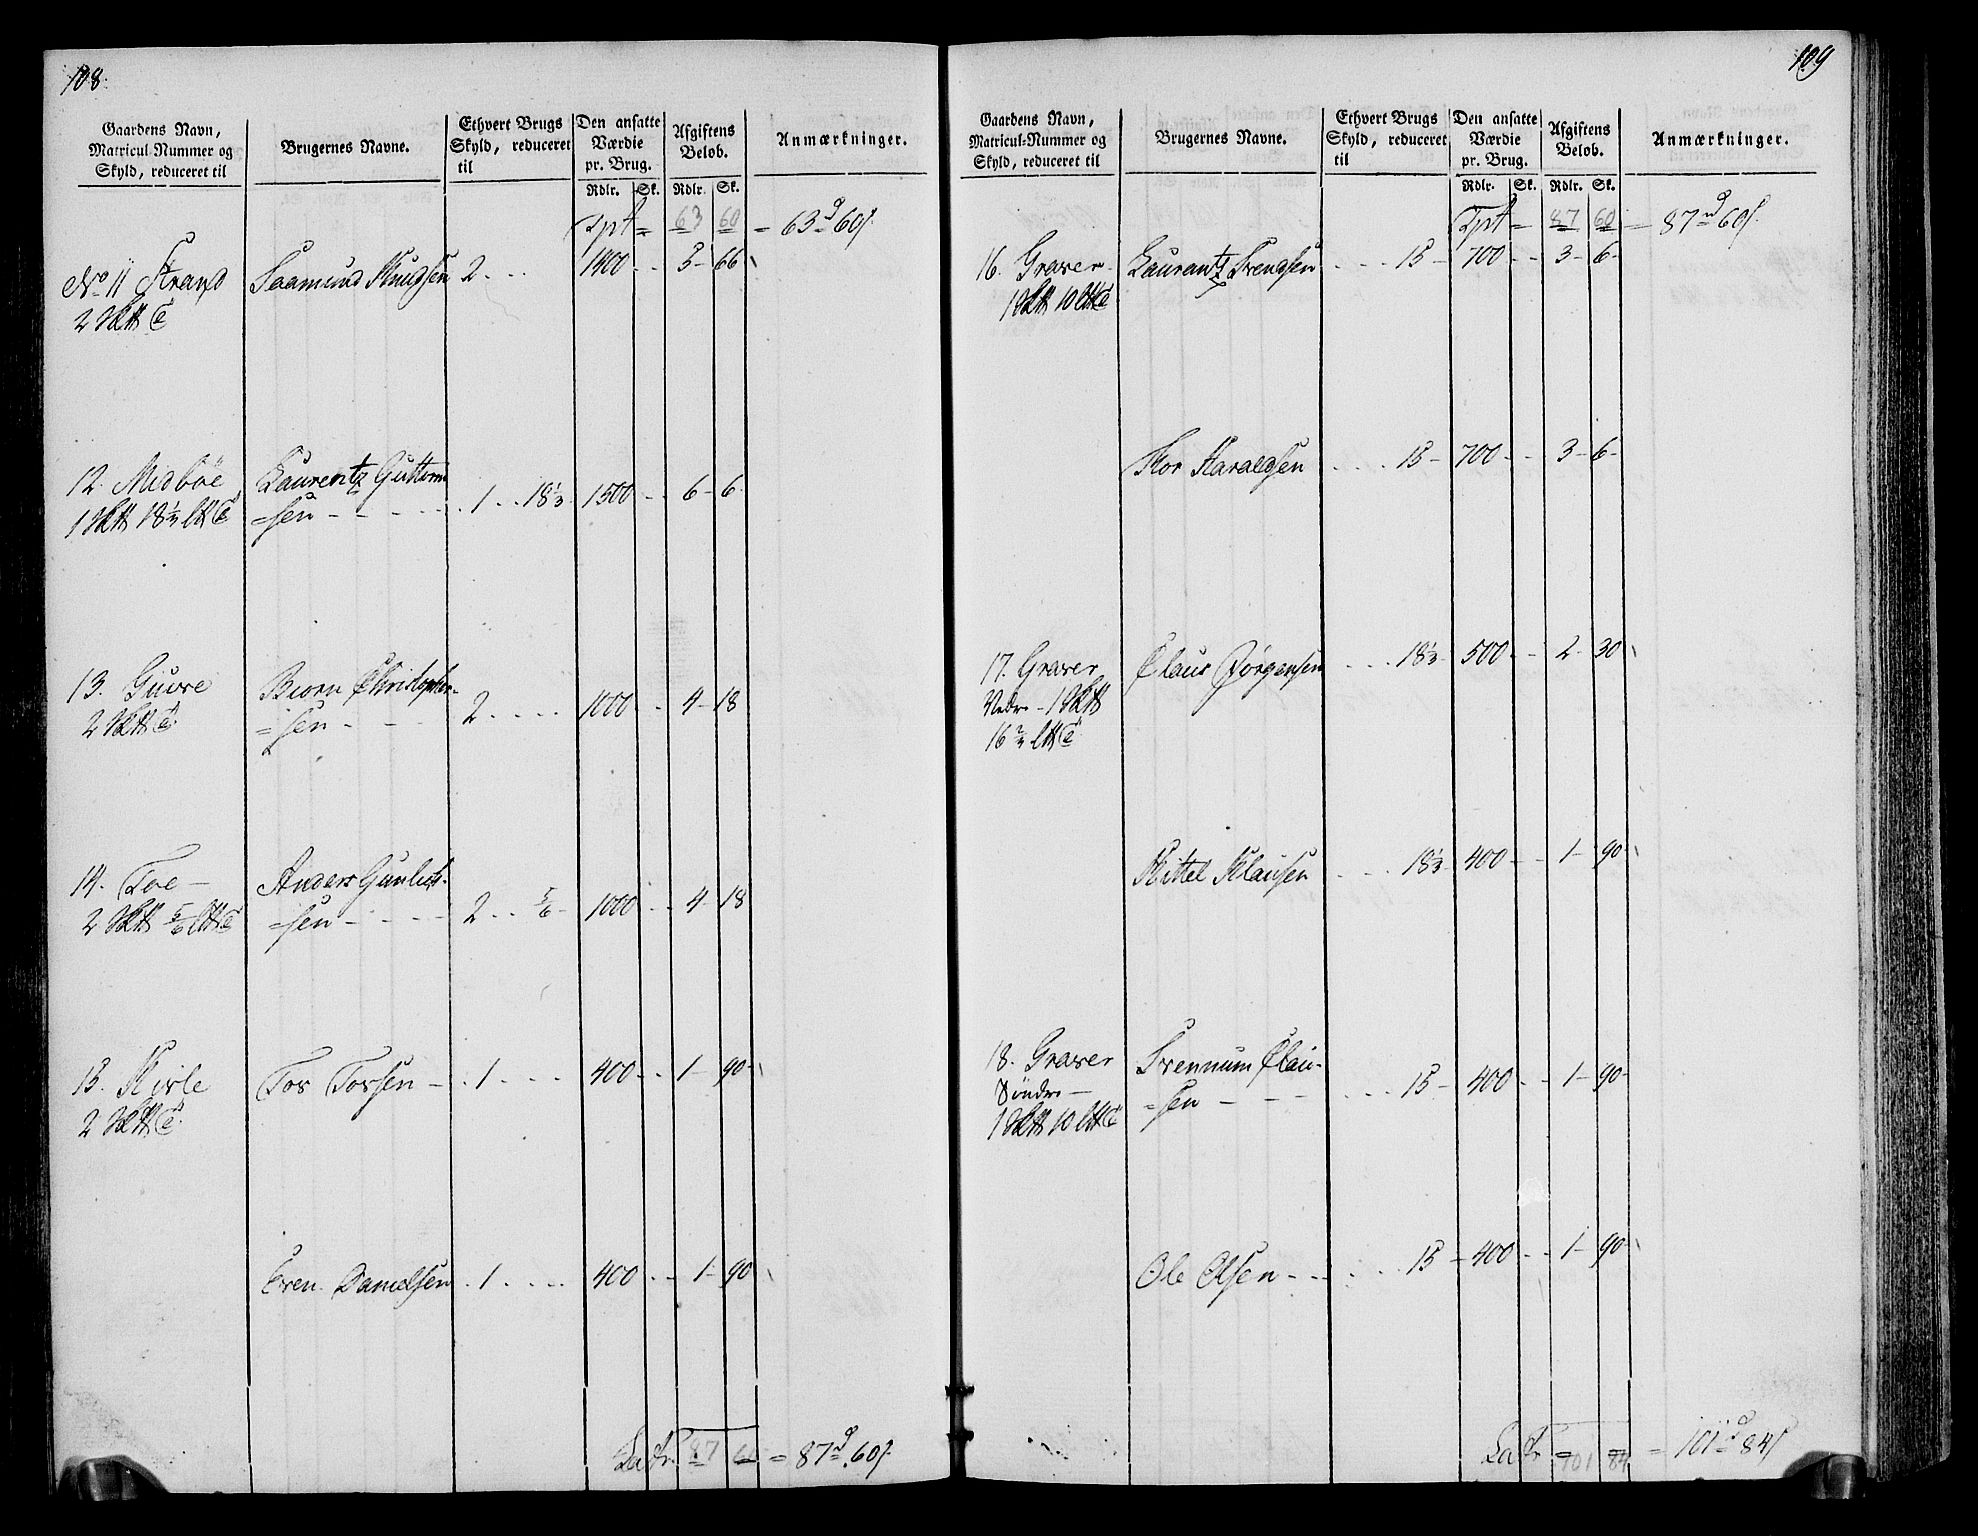 108.
Gaardens Navn, Matricul-Nummer og Skyld, reduceret til
Brugernes Navne.
Ethvert Brugs Skyld, reduceret til
Den ansatte Værdie pr. Brug.
Afgiftens Beløb.
Anmærkninger.
Rdlr. Sk. Rdlr. Sk.
Tpt = 63 60 = 63 60
No 11 Strand Saamund Knudsen 2 1400 5 66
2
12. Midbøe Laurentz Guttorm
=sen 1 18 1/3 1500 6 6
1 18 1/3
13. Guvre Biorn Christopher-
=sen 2 1000 4 18
2
14. Toe Anders Gunlech-
=sen 2 5/6 1000 4 18
2 5/6
15. Kirle Tov Tovsen 1 400 1 90
2
Even Danielsen 1 400 1 90
Latr. 87 60 = 87 60
109
Gaardens Navn, Matricul-Nummer og Skyld, reduceret til
Brugernes Navne.
Ethvert Brugs Skyld, reduceret til
Den ansatte Værdie pr. Brug.
Afgiftens Beløb.
Anmærkninger.
Rdlr. Sk. Rdlr. Sk.
Tpt = 87 60 = 87 60
16. Graver Laurantz Svendsen 15 700 3 6
1 10
Thor Haraldsen 15 700 3 6
17. Graver Claus Jørgensen 18 1/3 500 2 30
Nedre 1
16 2/3
Kittel Klausen 18 1/3 400 1 90
18. Graver Svennum Clau-
Søndre =sen 15 400 1 90
1 10
Ole Olsen 15 400 1 90
Latr 101 84 = 101 84